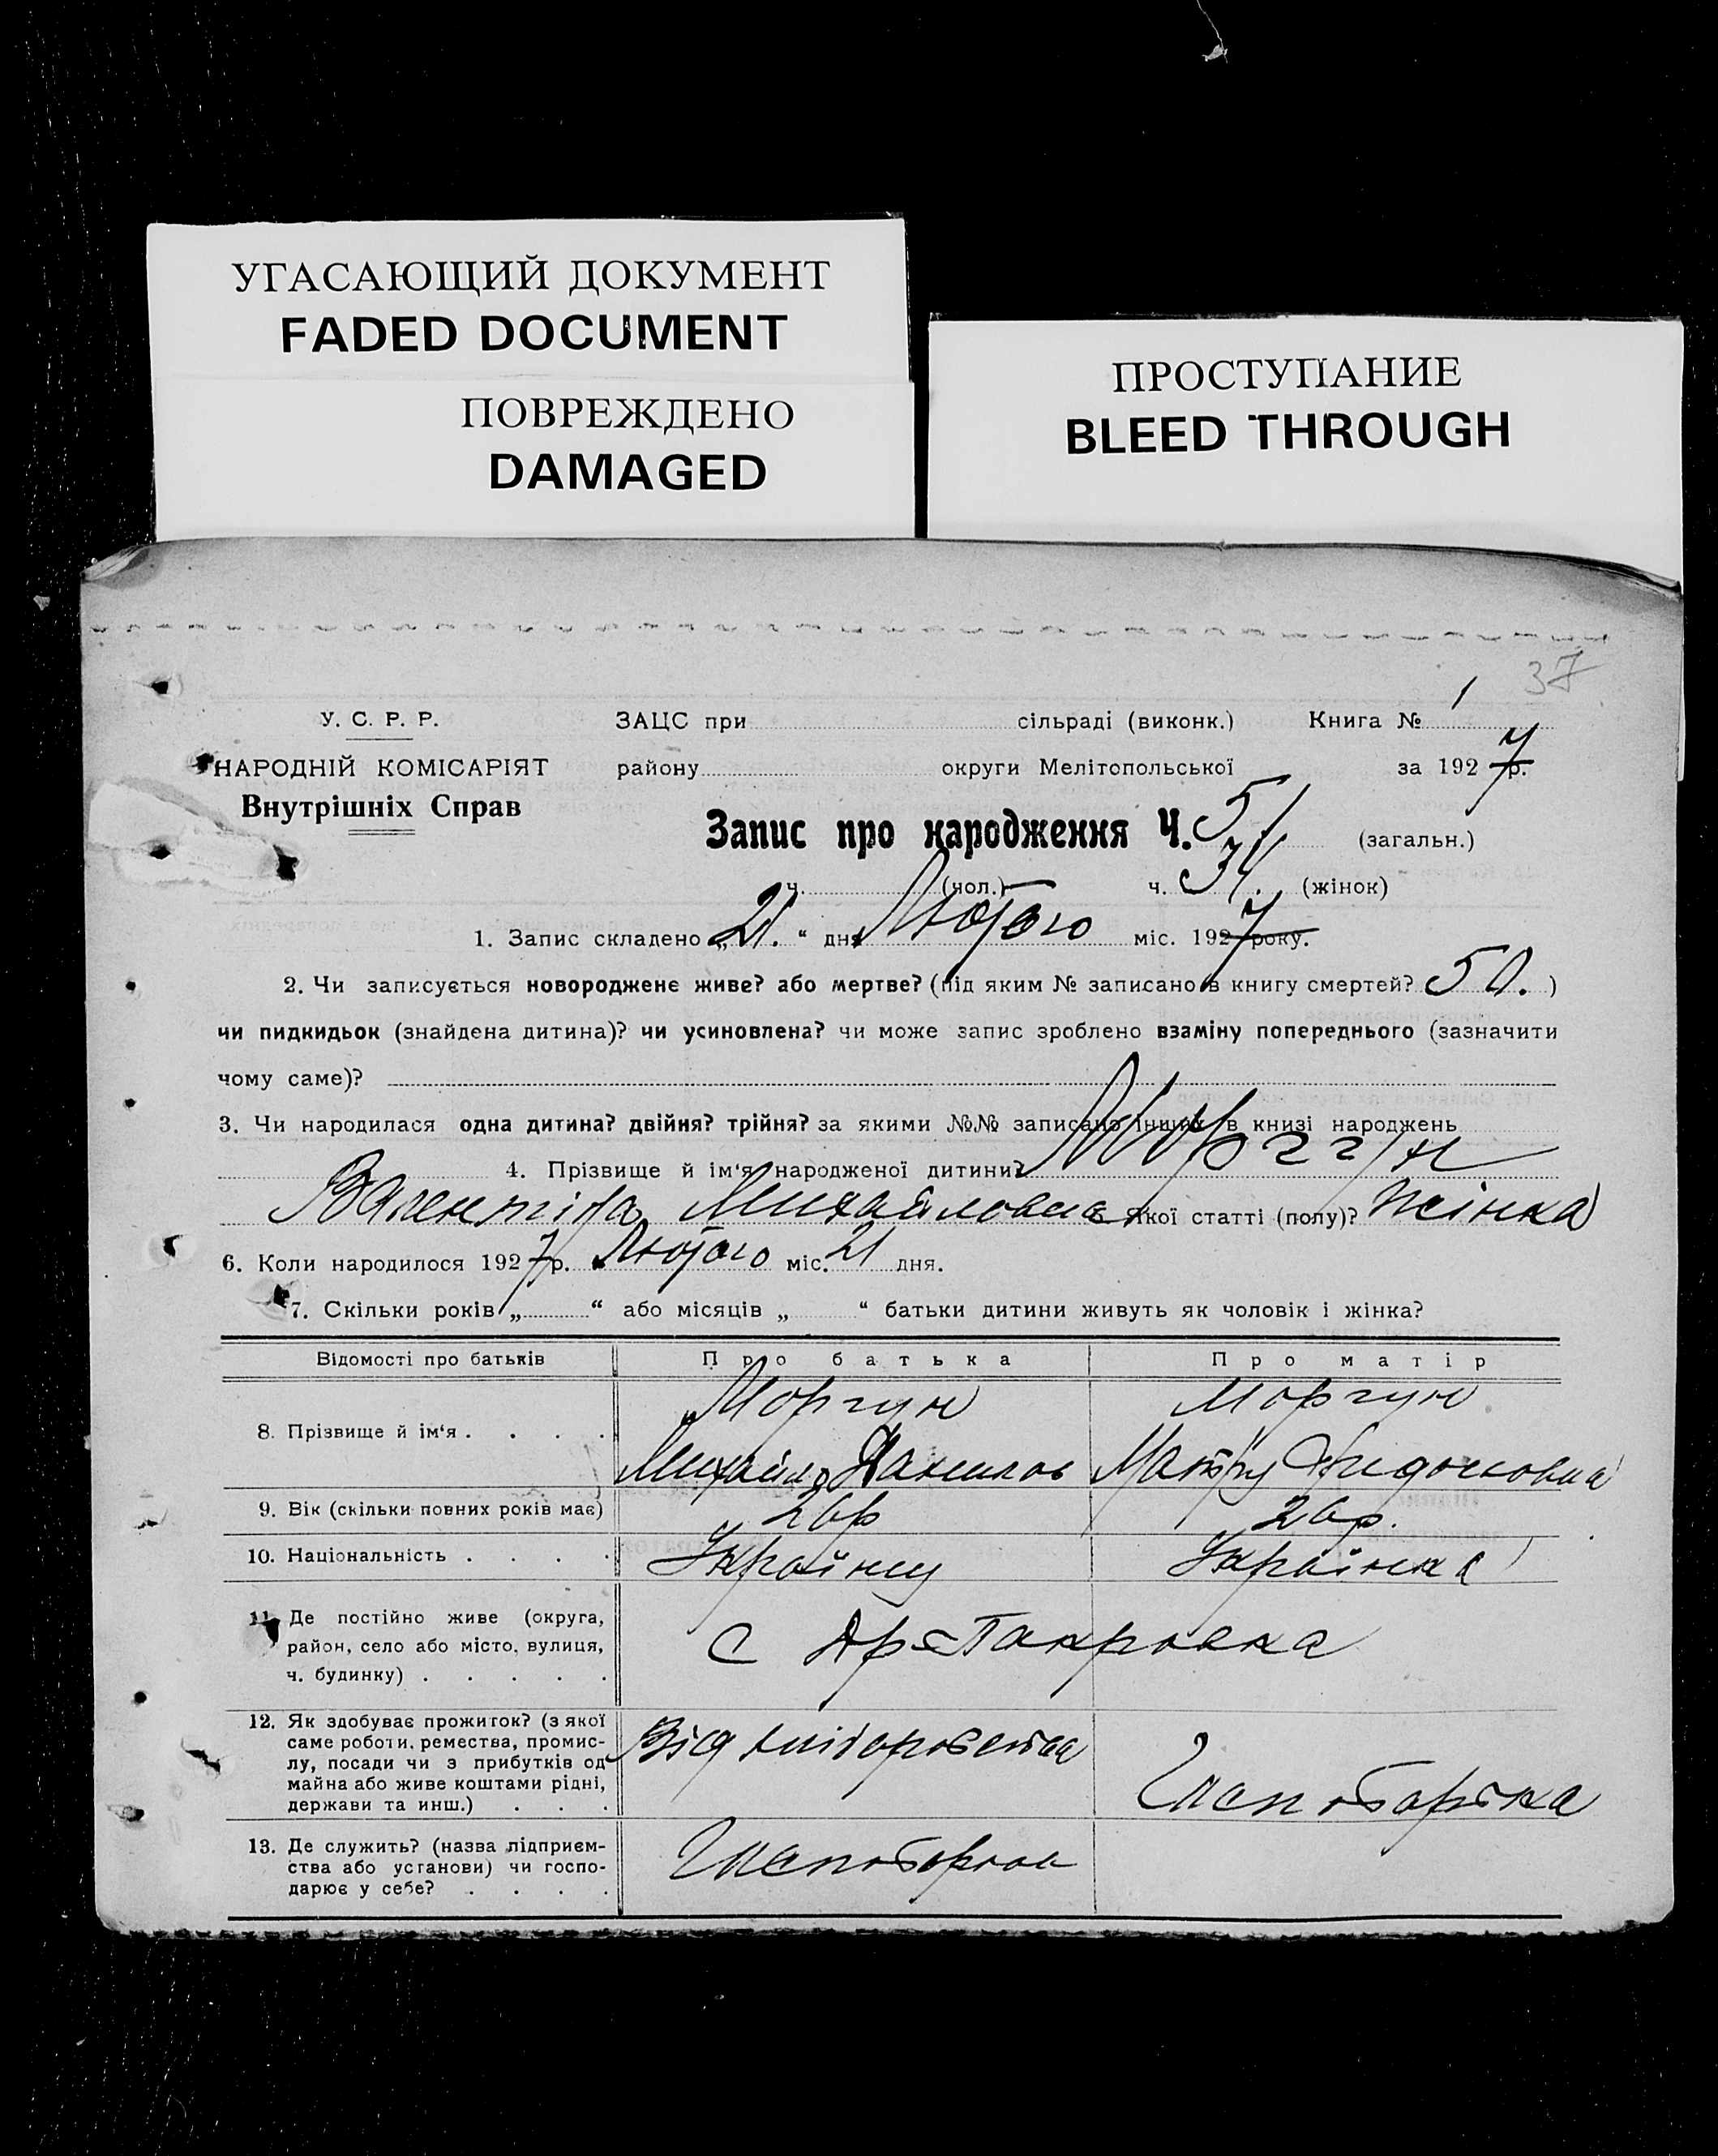 УГАСАЮЩИЙ ДОКУМЕНТ
FADED DOCUMENT
ПОВРЕЖДЕНО
DAMAGED
ПРОСТУПАНИЕ
BLEED THROUGH
37
У. С. Р. Р.
НАРОДНІЙ КОМІСАРІЯТ
Внутрішніх Справ
ЗАЦС при сільраді (виконк.) Книга № 1
району округи Мелітопольської за 1927 р.
Запис про народження Ч. 51 (загальн.)
ч. (чол.) ч. 31. (жінок)
1. Запис складено „21.“ дня Лютого міс. 1927 року.
2. Чи записується новороджене живе? або мертве? (під яким № записано в книгу смертей? 50.)
чи пидкидьок (знайдена дитина)? чи усиновлена? чи може запис зроблено взаміну попереднього (зазначити
чому саме)?
3. Чи народилася одна дитина? двійня? трійня? за якими №№ записано інших в книзі народжень
4. Прізвище й ім‘я народженої дитини? Моргун
Валентіна Михайловна якої статті (полу)? Жінка
6. Коли народилося 1927 р. Лютого міс. 21 дня.
7. Скільки років „ “ або місяців „ “ батьки дитини живуть як чоловік і жінка?
Відомості про батьків Про батька Про матір
8. Прізвище й ім‘я . . . . Моргун Моргун
Михайло
9. Вік (скільки повних років має) 26р 26р.
10. Національність . . . . Украйнц Украінка
11. Де постійно живе (округа,
район, село або місто, вулиця,
ч. будинку) . . . . .
с
12. Як здобуває прожиток? (з якої
саме роботи, ремества, промис-
лу, посади чи з прибутків од
майна або живе коштами рідні,
держави та инш.) . . .
Від
13. Де служить? (назва підприєм-
ства або установи) чи госпо-
дарює у себе? . . . .